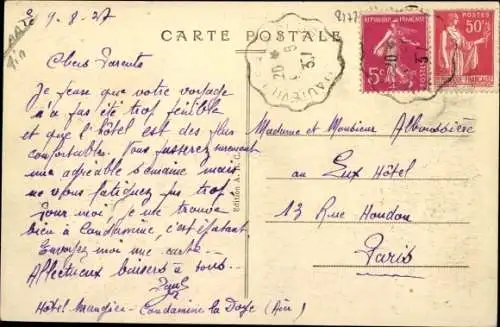 9.8.37
CARTE POSTALE
Chers Parents
Je pense que votre voyage
n'a pas été trop pénible
et que l'hôtel est des plus
confortables. Vous passerez surement
une agréable semaine mais
ne vous fatiguez pas trop.
Pour moi, je me trouve
bien à Condamine, c'est épatant
Envoyez moi une carte
Affectueux baisers à tous.
Paul
Hôtel Mangier - Condamine la Doye (Ain)
Edition A.
Madame et Monsieur Alboussière
au Lux Hôtel
13 Rue Houdon
Paris
HAUTEVILLE
REPUBLIQUE FRANÇAISE
5c
50c